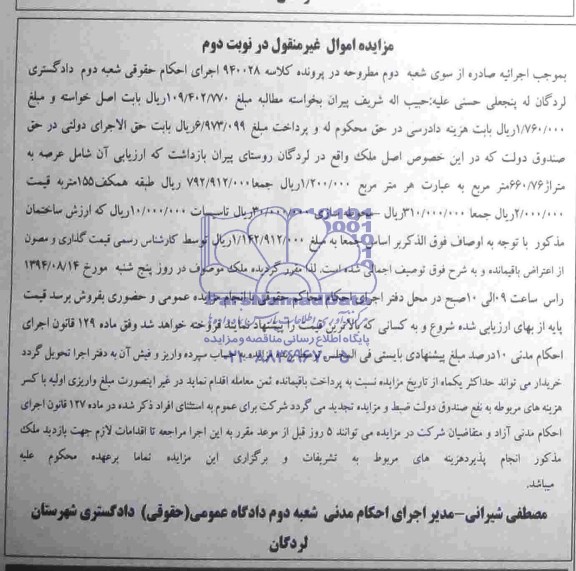 مزایده اموال غیرمنقول در نوبت دوم
بموجب اجرائیه صادره از سوی شعبه دوم مطروحه در پرونده کلاسه ۹۴۰۰۲۸ اجرای احکام حقوقی شعبه دوم دادگستری
لردگان له پنجعلی حسنی علیه:حبیب اله شریف پیران بخواسته مطالبه مبلغ ۱۰۹/۴۰۲/۷۷۰ریال بابت اصل خواسته و مبلغ
۱/۷۶۰/۰۰۰ریال بابت هزینه دادرسی در حق محکوم له و پرداخت مبلغ ۶/۹۷۳/۰۹۹ریال بابت حق الاجرای دولتی در حق
صندوق دولت که در این خصوص اصل ملک واقع در لردگان روستای پیران بازداشت که ارزیابی آن شامل عرصه به
متراژ۶۶۰/۷۶متر مربع به عبارت هر متر مربع ۱/۲۰۰/۰۰۰ریال جمعا۷۹۲/۹۱۲/۰۰۰ ریال طبقه همکف۱۵۵متربه قیمت
۲/۰۰۰/۰۰۰ریال جمعا ۳۱۰/۰۰۰/۰۰۰ریال محوطه سازی ۳۰/۰۰۰/۰۰۰ریال تاسیسات ۱۰/۰۰۰/۰۰۰ریال که ارزش ساختمان
مذکور با توجه به اوصاف فوق الذکربر اساس جمعا به مبلغ ۱/۱۴۲/۹۱۲/۰۰۰ریال توسط کارشناس رسمی قیمت گذاری و مصون
از اعتراض باقیمانده و به شرح فوق توصیف اجمالی شده است. لذا مقرر گردیده ملک موصوف در روز پنج شنبه مورخ ۱۳۹۴/۰۸/۱۴
راس ساعت ۰۹الی ۱۰صبح در محل دفتر اجرای احکام محاکم حقوقی با انجام مزایده عمومی و حضوری بفروش برسد قیمت
پایه از بهای ارزیابی شده شروع و به کسانی که بالاترین قیمت را پیشنهاد نمایند فروخته خواهد شد وفق ماده ۱۲۹ قانون اجرای
احکام مدنی ۱۰درصد مبلغ پیشنهادی بایستی فی المجلس به حساب سپرده واریز و فیش آن به دفتر اجرا تحویل گردد
خریدار می تواند حداکثر یکماه از تاریخ مزایده نسبت به پرداخت باقیمانده ثمن معامله اقدام نماید در غیر اینصورت مبلغ واریزی اولیه با کسر
هزینه های مربوطه به نفع صندوق دولت ضبط و مزایده تجدید می گردد شرکت برای عموم به استثنای افراد ذکر شده در ماده ۱۲۷ قانون اجرای
احکام مدنی آزاد و متقاضیان شرکت در مزایده می توانند ۵ روز قبل از موعد مقرر به این اجرا مراجعه تا اقدامات لازم جهت بازدید ملک
مذکور انجام پذیردهزینه های مربوط به تشریفات و برگزاری این مزایده تماما برعهده محکوم علیه
میباشد.
مصطفی شیرانی-مدیر اجرای احکام مدنی شعبه دوم دادگاه عمومی(حقوقی) دادگستری شهرستان
لردگان
ParsNamadData
پایگاه اطلاع رسانی مناقصه و مزایده
۰۲۱-۸۸۳۴۹۶۷۰-۵